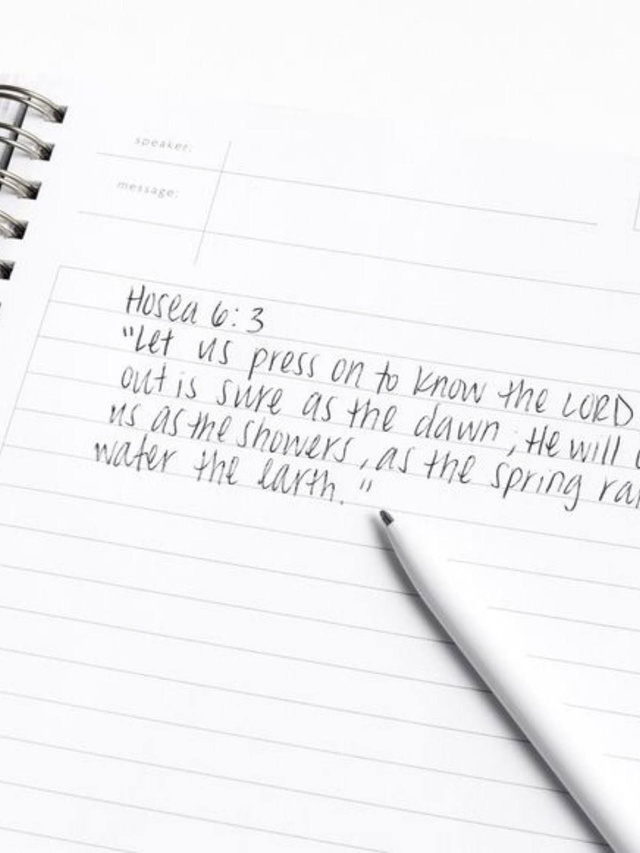 speaker:
message:
Hosea 6:3
"Let us press on to know the LORD
out is sure as the dawn; He will
us as the showers, as the spring
water the earth."